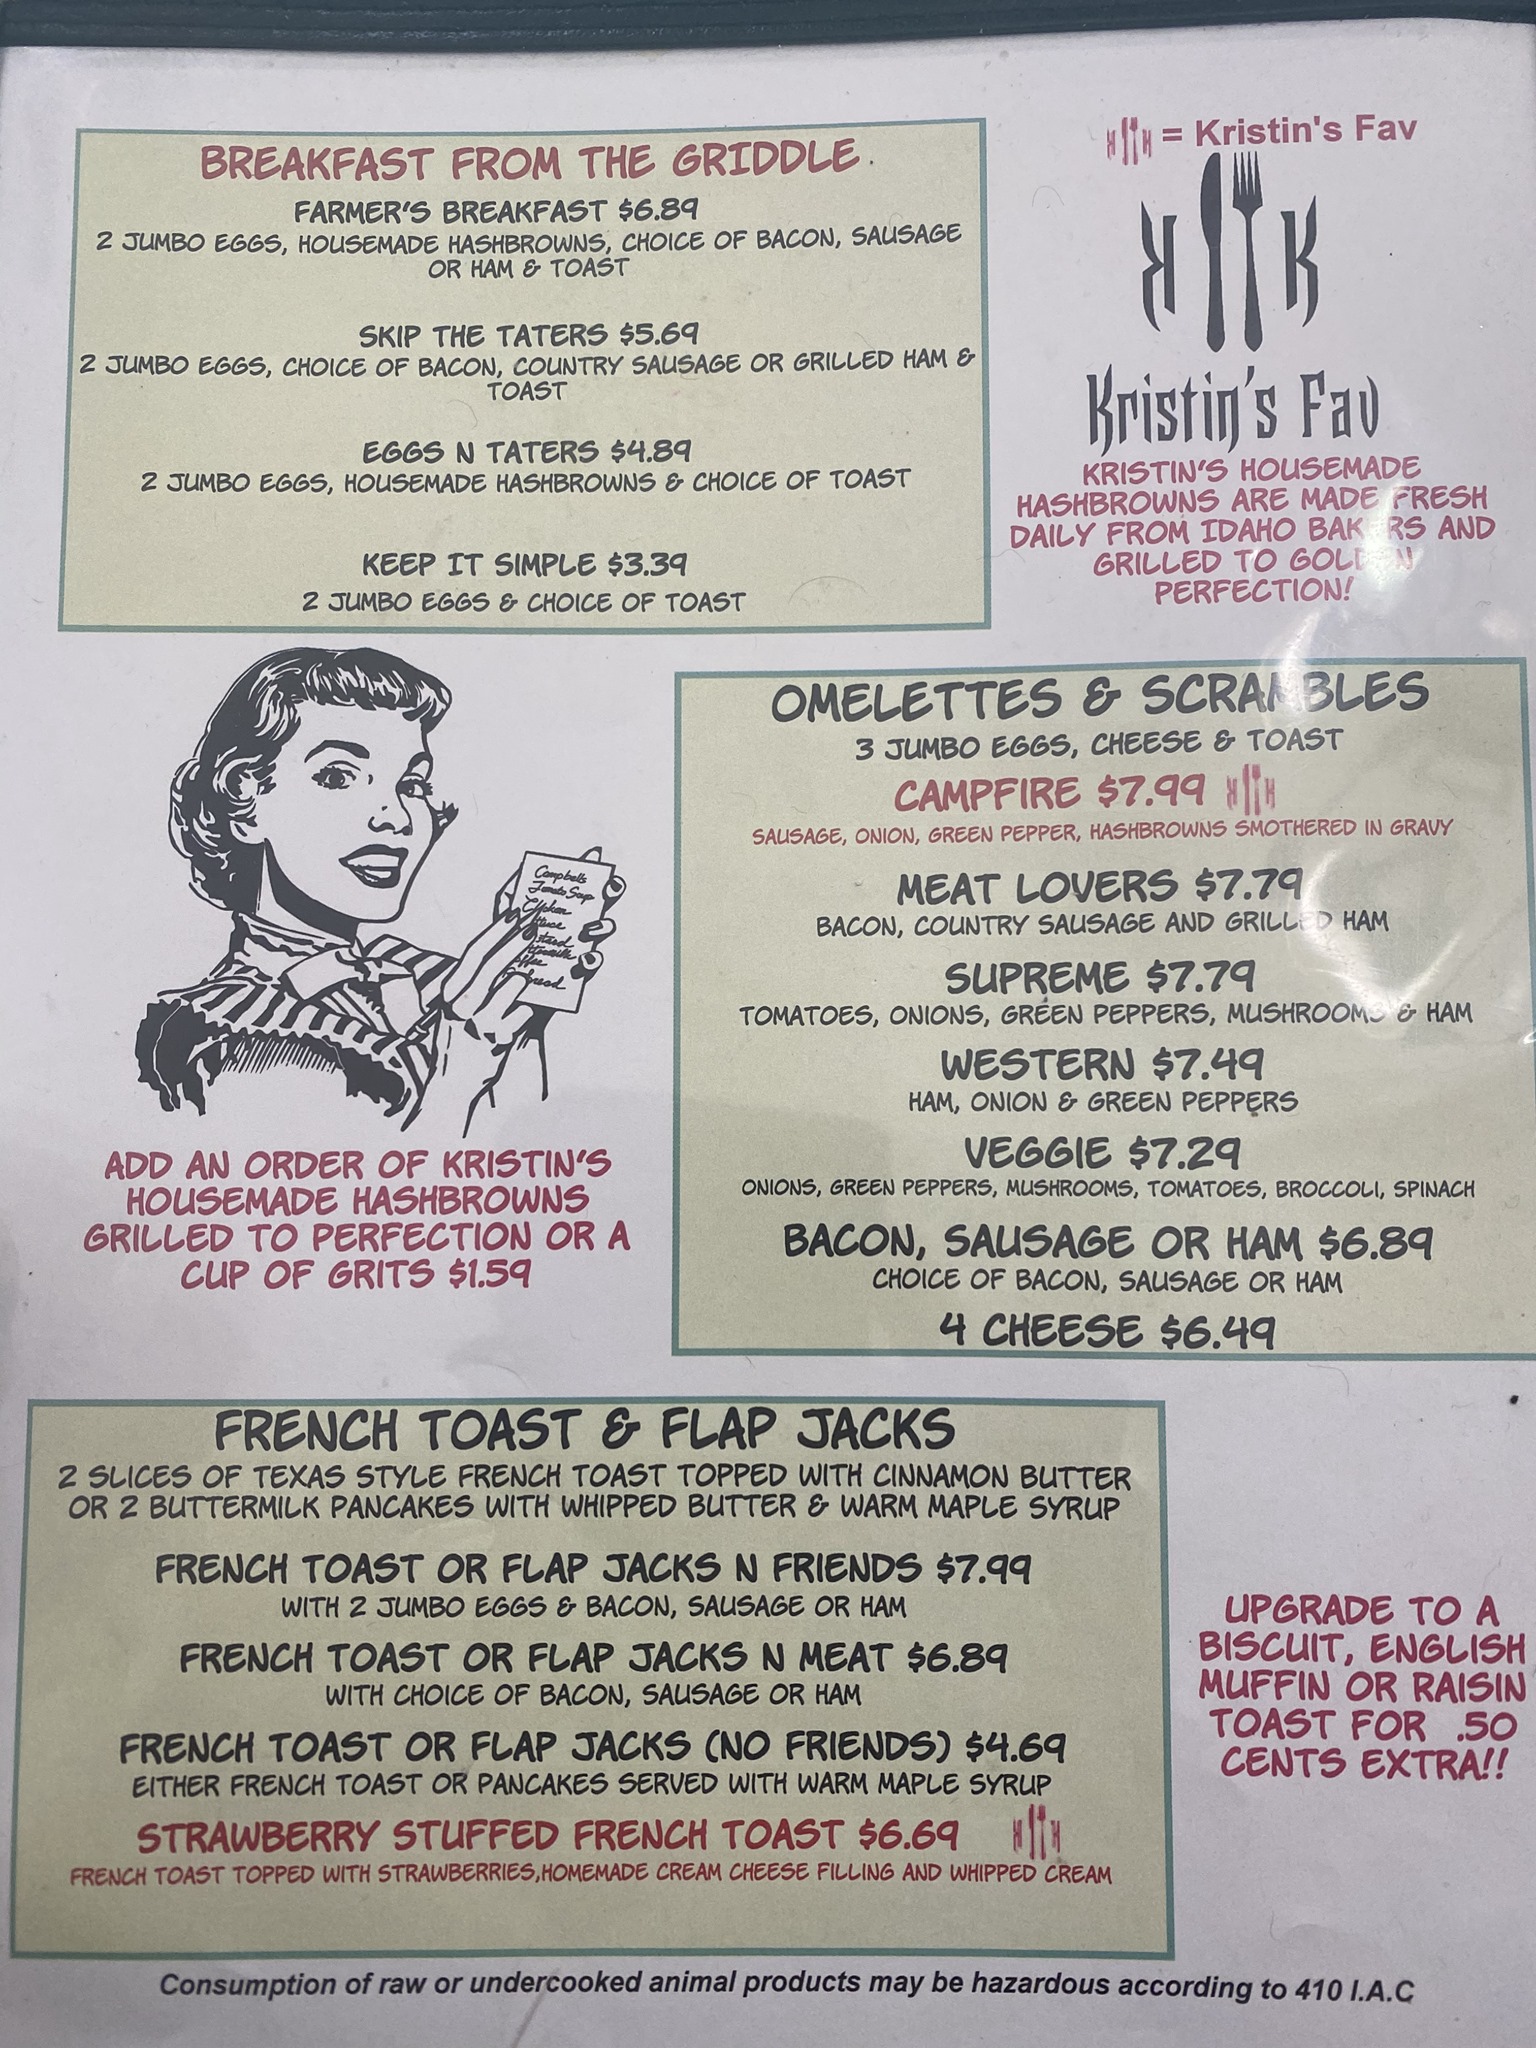 BREAKFAST FROM THE GRIDDLE
FARMER'S BREAKFAST $6.89
2 JUMBO EGGS, HOUSEMADE HASHBROWNS, CHOICE OF BACON, SAUSAGE
OR HAM & TOAST
SKIP THE TATERS $5.69
2 JUMBO EGGS, CHOICE OF BACON, COUNTRY SAUSAGE OR GRILLED HAM &
TOAST
EGGS N TATERS $4.89
2 JUMBO EGGS, HOUSEMADE HASHBROWNS & CHOICE OF TOAST
KEEP IT SIMPLE $3.39
2 JUMBO EGGS & CHOICE OF TOAST
K K = Kristin's Fav
K K
Kristin's Fav
KRISTIN'S HOUSEMADE
HASHBROWNS ARE MADE FRESH
DAILY FROM IDAHO BAKERS AND
GRILLED TO GOLDEN
PERFECTION!
Campbells
Tomato Soup
Chicken
bread
ADD AN ORDER OF KRISTIN'S
HOUSEMADE HASHBROWNS
GRILLED TO PERFECTION OR A
CUP OF GRITS $1.59
OMELETTES & SCRAMBLES
3 JUMBO EGGS, CHEESE & TOAST
CAMPFIRE $7.99 K K
SAUSAGE, ONION, GREEN PEPPER, HASHBROWNS SMOTHERED IN GRAVY
MEAT LOVERS $7.79
BACON, COUNTRY SAUSAGE AND GRILLED HAM
SUPREME $7.79
TOMATOES, ONIONS, GREEN PEPPERS, MUSHROOMS & HAM
WESTERN $7.49
HAM, ONION & GREEN PEPPERS
VEGGIE $7.29
ONIONS, GREEN PEPPERS, MUSHROOMS, TOMATOES, BROCCOLI, SPINACH
BACON, SAUSAGE OR HAM $6.89
CHOICE OF BACON, SAUSAGE OR HAM
4 CHEESE $6.49
FRENCH TOAST & FLAP JACKS
2 SLICES OF TEXAS STYLE FRENCH TOAST TOPPED WITH CINNAMON BUTTER
OR 2 BUTTERMILK PANCAKES WITH WHIPPED BUTTER & WARM MAPLE SYRUP
FRENCH TOAST OR FLAP JACKS N FRIENDS $7.99
WITH 2 JUMBO EGGS & BACON, SAUSAGE OR HAM
FRENCH TOAST OR FLAP JACKS N MEAT $6.89
WITH CHOICE OF BACON, SAUSAGE OR HAM
FRENCH TOAST OR FLAP JACKS (NO FRIENDS) $4.69
EITHER FRENCH TOAST OR PANCAKES SERVED WITH WARM MAPLE SYRUP
STRAWBERRY STUFFED FRENCH TOAST $6.69 K K
FRENCH TOAST TOPPED WITH STRAWBERRIES,HOMEMADE CREAM CHEESE FILLING AND WHIPPED CREAM
UPGRADE TO A
BISCUIT, ENGLISH
MUFFIN OR RAISIN
TOAST FOR .50
CENTS EXTRA!!
Consumption of raw or undercooked animal products may be hazardous according to 410 I.A.C